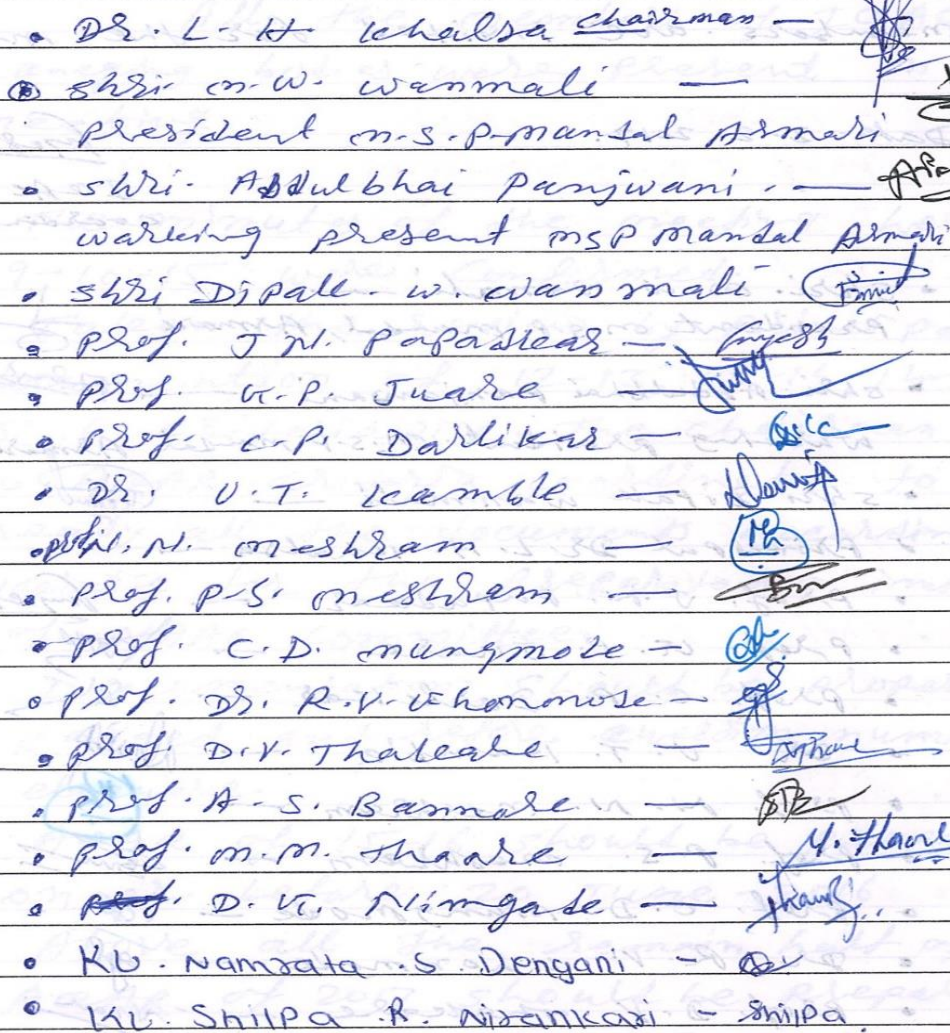 • Dr. L. H. Khalsa chairman —
• Shri. M. W. Wanmali —
President M.S.P. Mandal Armori
• Shri. Abdulbhai Panjwani. —
working present MSP Mandal Armori
• Shri Dipak. W. Wanmali.
• Prof. J N. Papadkar —
• Prof. K. P. Juare —
• Prof. C. P. Darlikar —
• Dr. U. T. Kamble —
• Prof. N. N. Meshram —
• Prof. P. S. Meshram —
• Prof. C. D. Mungmode —
• Prof. Dr. R. V. —
• Prof. D. V. —
• Prof. A. S. Banmare —
• Prof. M. M. Thaore — M. Thaore
• D. K. Nimgade —
• KU. Namrata. S. Dengani —
• KU. Shilpa. R. Nirankari — Shilpa.